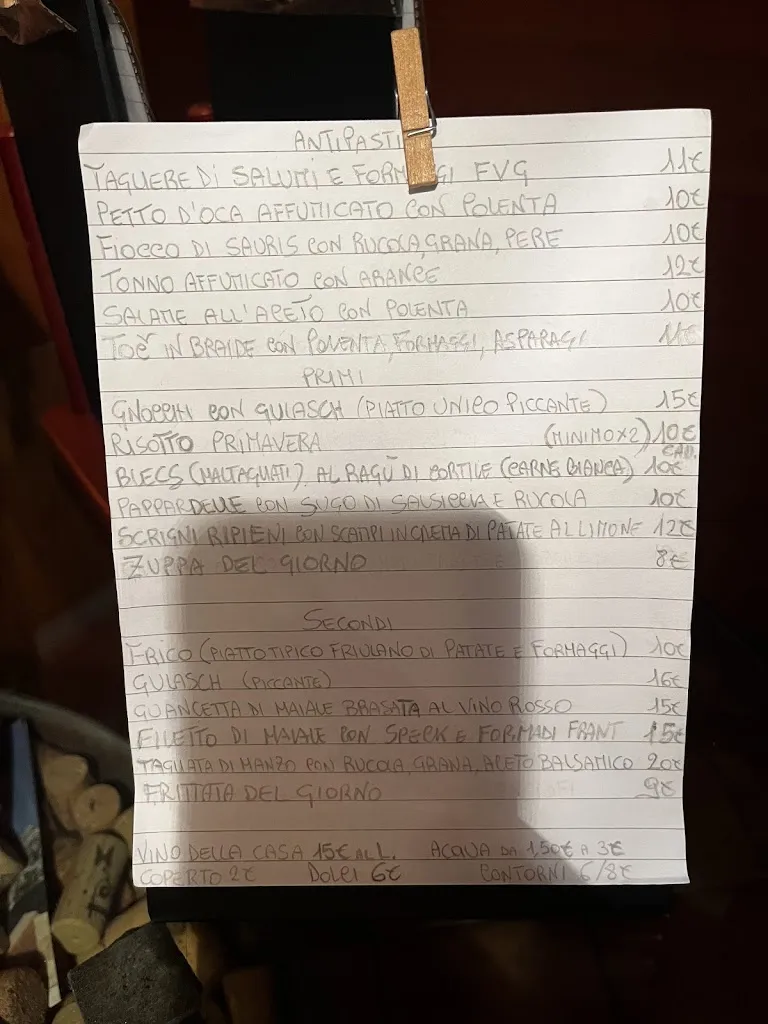 ANTIPASTI
TAGLIERE DI SALUMI E FORMAGGI FVG 11€
PETTO D'OCA AFFUMICATO CON POLENTA 10€
FIOCCO DI SAURIS CON RUCOLA, GRANA, PERE 10€
TONNO AFFUMICATO CON ARANCE 12€
SALAME ALL'ACETO CON POLENTA 10€
TOČ IN BRAIDE CON POLENTA, FORMAGGI, ASPARAGI 11€
PRIMI
GNOCCHI CON GULASCH (PIATTO UNICO PICCANTE) 15€
RISOTTO PRIMAVERA (MINIMO X2) 10€
CAD.
BLECS (MALTAGLIATI) AL RAGÙ DI CORTILE (CARNE BIANCA) 10€
PAPPARDELLE CON SUGO DI SALSICCIA E RUCOLA 10€
SCRIGNI RIPIENI CON SCAMPI IN CREMA DI PATATE AL LIMONE 12€
ZUPPA DEL GIORNO 8€
SECONDI
FRICO (PIATTO TIPICO FRIULANO DI PATATE E FORMAGGI) 10€
GULASCH (PICCANTE) 16€
GUANCETTA DI MAIALE BRASATA AL VINO ROSSO 15€
FILETTO DI MAIALE CON SPECK E FORMADI FRANT 15€
TAGLIATA DI MANZO CON RUCOLA, GRANA, ACETO BALSAMICO 20€
FRITTATA DEL GIORNO 9€
VINO DELLA CASA 15€ AL L. ACQUA DA 1,50€ A 3€
COPERTO 2€ DOLCI 6€ CONTORNI 6/8€